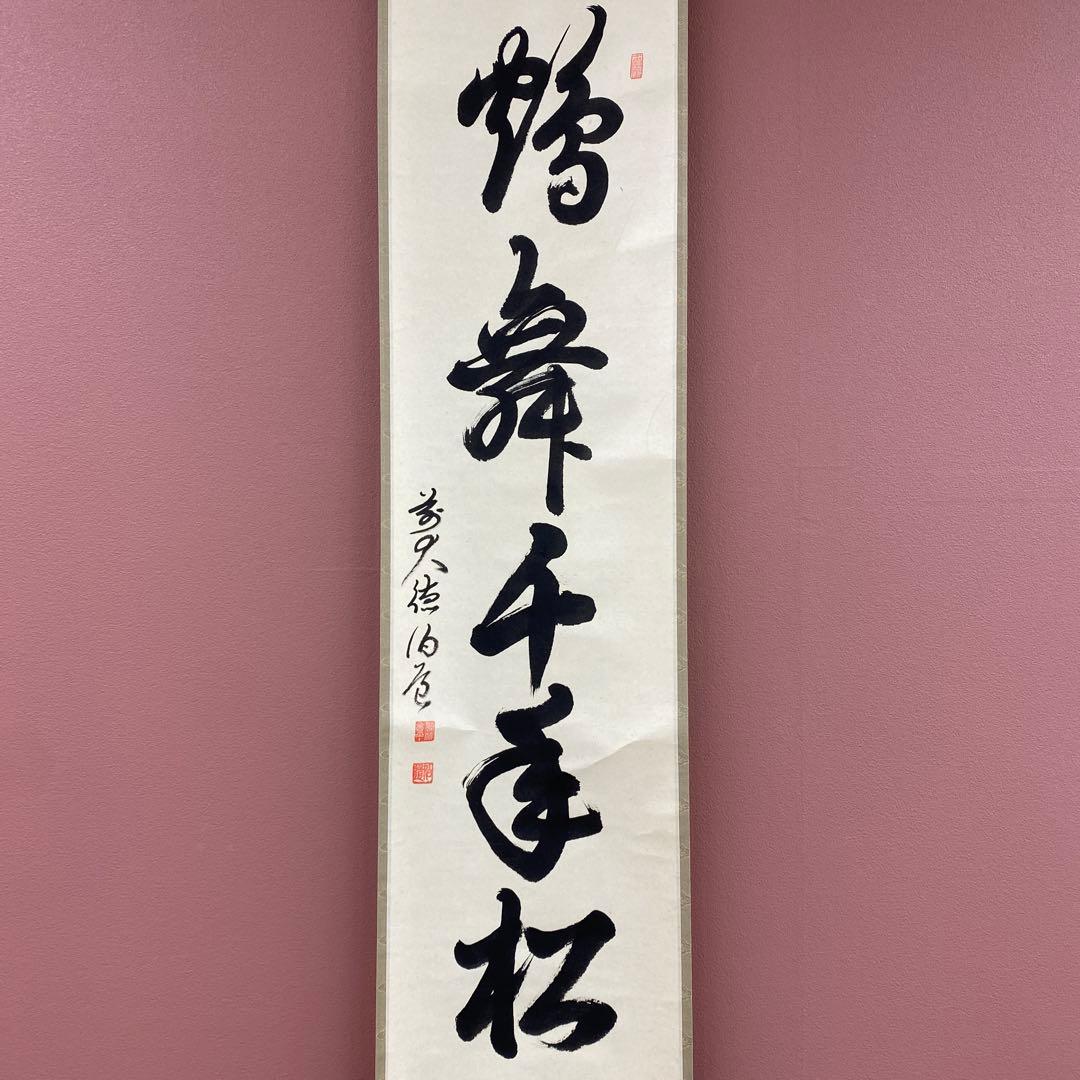 鶴舞千年松
前大徳伯道